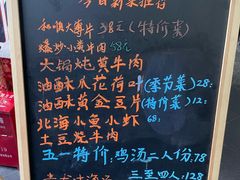 今日新菜推荐
和顺大薄片38元(特价菜)
爆炒小黄牛肉58元
火锅炖黄牛肉
油酥水瓜花(季节菜)28:
油酥黄金豆片(特价菜)12:
北海小鱼小虾68:
土豆烧牛肉
五一特价,鸡汤二人份:78
三至四人:128